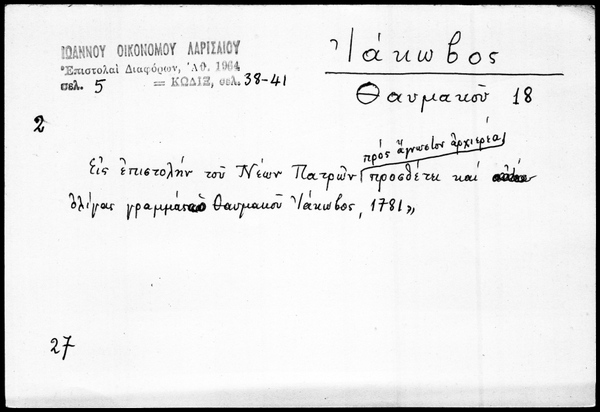 ΙΩΑΝΝΟΥ ΟΙΚΟΝΟΜΟΥ ΛΑΡΙΣΑΙΟΥ
Ἐπιστολαὶ Διαφόρων, Ἀθ. 1964
σελ. 5 = ΚΩΔΙΞ, σελ. 38-41
Ἰάκωβος
Θαυμακοῦ 18
2
πρός ἄγνωστον ἀρχιερέα
Εἰς ἐπιστολήν τοῦ Νέων Πατρῶν προσθέτει καί
ὀλίγας γραμμάς ὁ Θαυμακοῦ Ἰάκωβος, 1781»
27